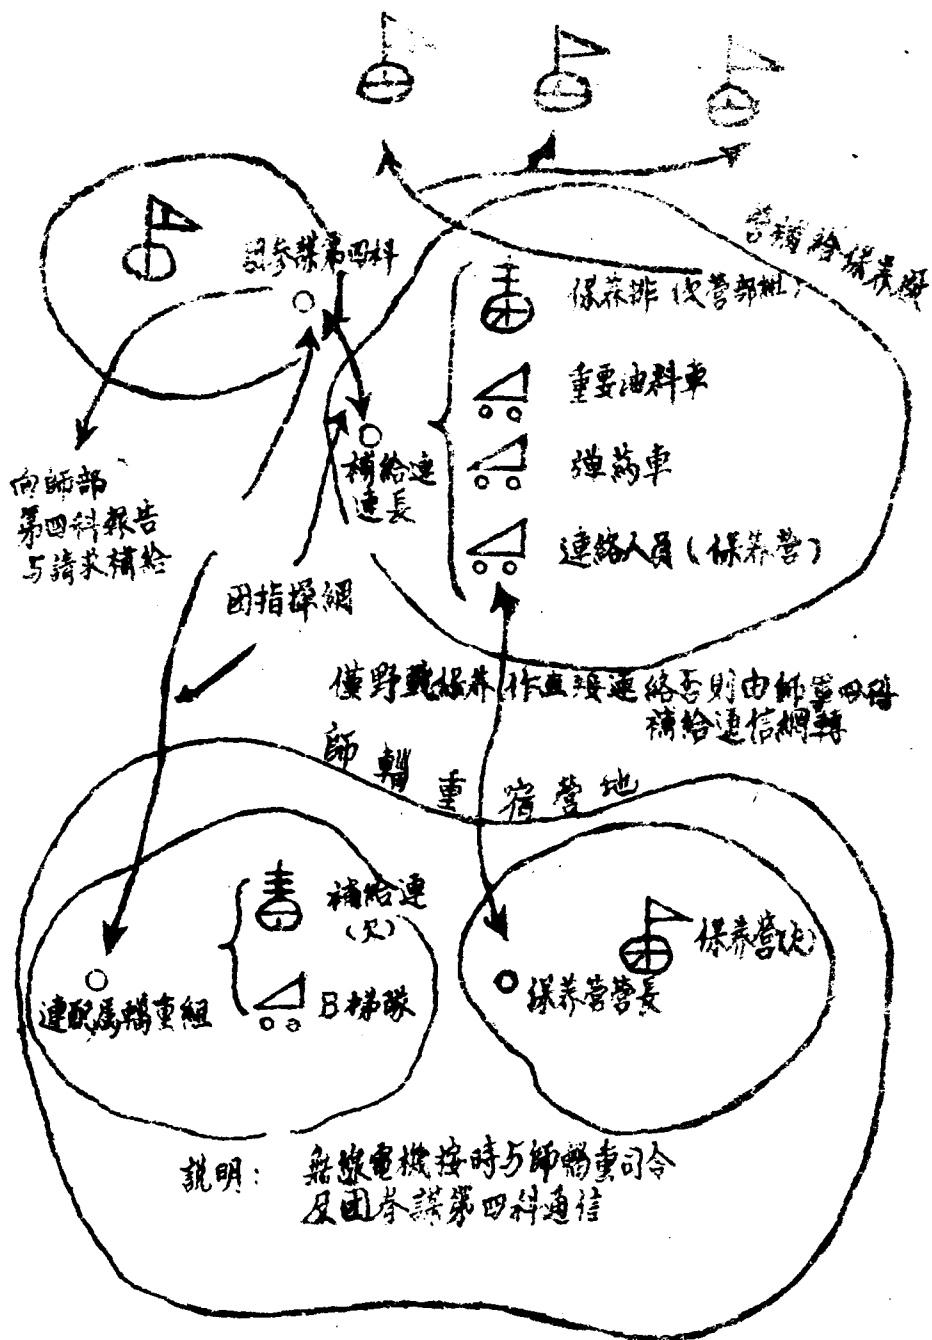 團參謀第四科
營補給保養
保养排(欠營部組)
重要油料車
弹药車
連絡人員(保养營)
補給連
連長
向師部
第四科報告
与請求補給
团指揮網
僅野戰保养作直接連絡否則由師第四科
補給通信網轉
師輜重宿營地
補給連
(欠)
B梯隊
連配属輜重組
保养營(欠)
保养營營長
説明: 無線電機按時与師輜重司令
及团參謀第四科通信